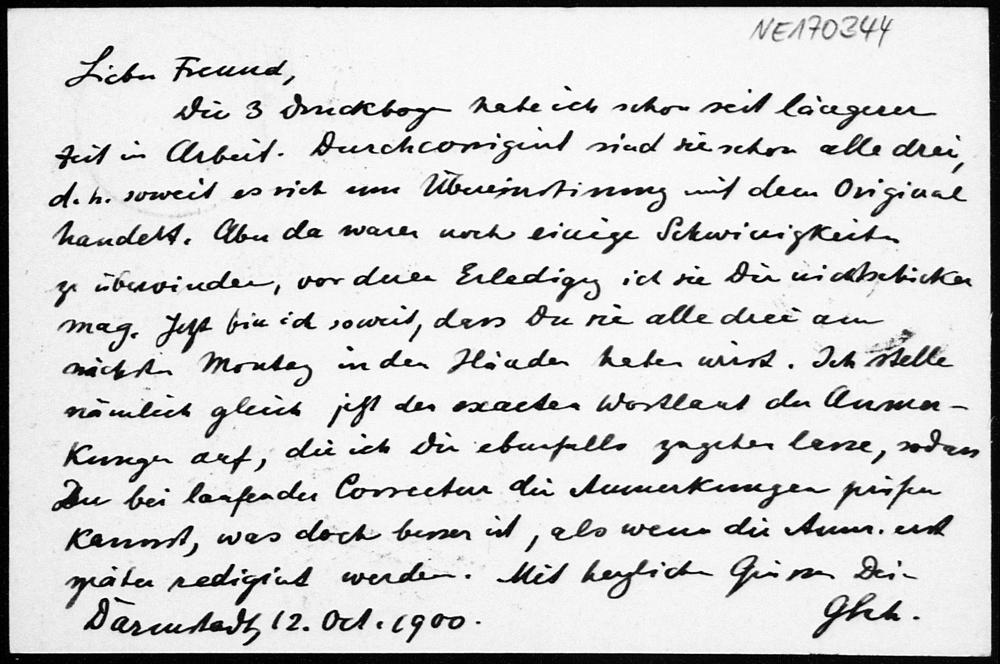 NE170344
Lieber Freund,
Die 3 Druckbogen habe ich schon seit längerer
Zeit in Arbeit. Durchcorrigirt sind sie schon alle drei,
d. h. soweit es sich um Übereinstimmung mit dem Original
handelt. Aber da waren noch einige Schwierigkeiten
zu überwinden, vor deren Erledigung ich sie Dir nicht schicken
mag. Jetzt bin ich soweit, dass Du sie alle drei am
nächsten Montag in den Händen haben wirst. Ich stelle
nämlich gleich jetzt den exacten Wortlaut der Anmer-
kungen auf, die ich Dir ebenfalls zugehen lasse, sodass
Du bei laufender Correctur die Anmerkungen prüfen
kannst, was doch besser ist, als wenn die Anm. erst
später redigirt werden. Mit herzlichen Grüssen Dein
Darmstadt, 12. Oct. 1900.